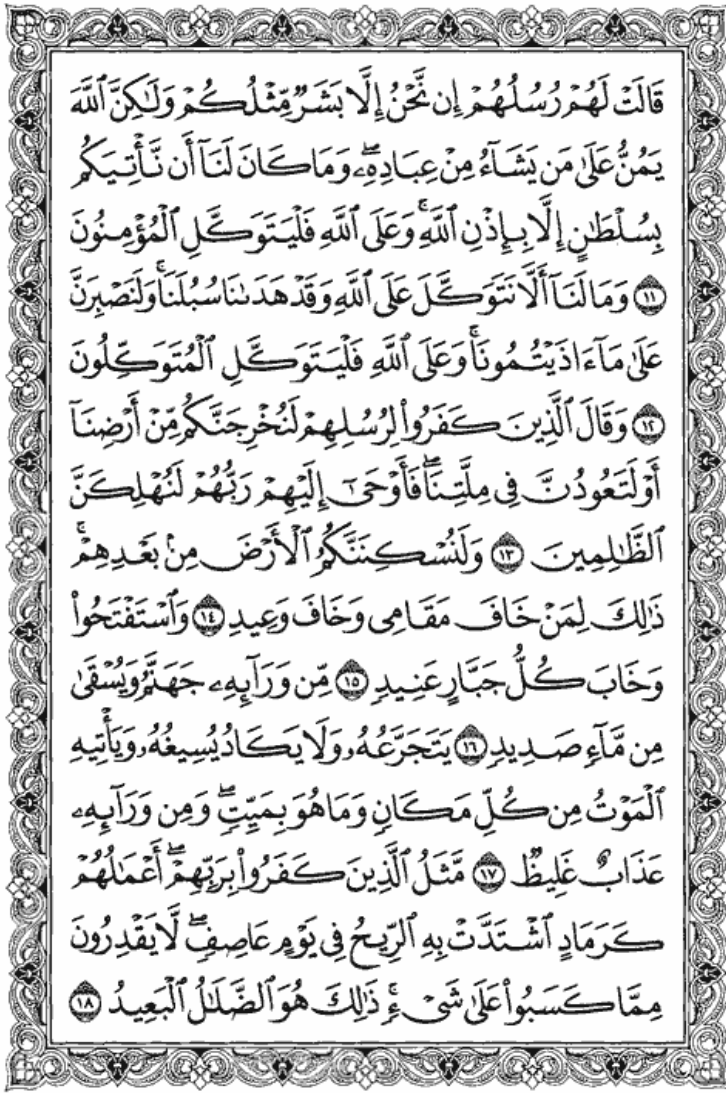 قَالَتْ لَهُمْ رُسُلُهُمْ إِن نَّحْنُ إِلَّا بَشَرٌ مِّثْلُكُمْ وَلَٰكِنَّ ٱللَّهَ
يَمُنُّ عَلَىٰ مَن يَشَآءُ مِنْ عِبَادِهِۦۖ وَمَا كَانَ لَنَآ أَن نَّأْتِيَكُم
بِسُلْطَٰنٍ إِلَّا بِإِذْنِ ٱللَّهِۚ وَعَلَى ٱللَّهِ فَلْيَتَوَكَّلِ ٱلْمُؤْمِنُونَ
١١ وَمَا لَنَآ أَلَّا نَتَوَكَّلَ عَلَى ٱللَّهِ وَقَدْ هَدَىٰنَا سُبُلَنَاۚ وَلَنَصْبِرَنَّ
عَلَىٰ مَآ ءَاذَيْتُمُونَاۚ وَعَلَى ٱللَّهِ فَلْيَتَوَكَّلِ ٱلْمُتَوَكِّلُونَ
١٢ وَقَالَ ٱلَّذِينَ كَفَرُوا۟ لِرُسُلِهِمْ لَنُخْرِجَنَّكُم مِّنْ أَرْضِنَآ
أَوْ لَتَعُودُنَّ فِى مِلَّتِنَاۖ فَأَوْحَىٰٓ إِلَيْهِمْ رَبُّهُمْ لَنُهْلِكَنَّ
ٱلظَّٰلِمِينَ ١٣ وَلَنُسْكِنَنَّكُمُ ٱلْأَرْضَ مِنۢ بَعْدِهِمْۚ
ذَٰلِكَ لِمَنْ خَافَ مَقَامِى وَخَافَ وَعِيدِ ١٤ وَٱسْتَفْتَحُوا۟
وَخَابَ كُلُّ جَبَّارٍ عَنِيدٍ ١٥ مِّن وَرَآئِهِۦ جَهَنَّمُ وَيُسْقَىٰ
مِن مَّآءٍ صَدِيدٍ ١٦ يَتَجَرَّعُهُۥ وَلَا يَكَادُ يُسِيغُهُۥ وَيَأْتِيهِ
ٱلْمَوْتُ مِن كُلِّ مَكَانٍ وَمَا هُوَ بِمَيِّتٍۖ وَمِن وَرَآئِهِۦ
عَذَابٌ غَلِيظٌ ١٧ مَّثَلُ ٱلَّذِينَ كَفَرُوا۟ بِرَبِّهِمْۖ أَعْمَٰلُهُمْ
كَرَمَادٍ ٱشْتَدَّتْ بِهِ ٱلرِّيحُ فِى يَوْمٍ عَاصِفٍۖ لَّا يَقْدِرُونَ
مِمَّا كَسَبُوا۟ عَلَىٰ شَىْءٍۚ ذَٰلِكَ هُوَ ٱلضَّلَٰلُ ٱلْبَعِيدُ ١٨